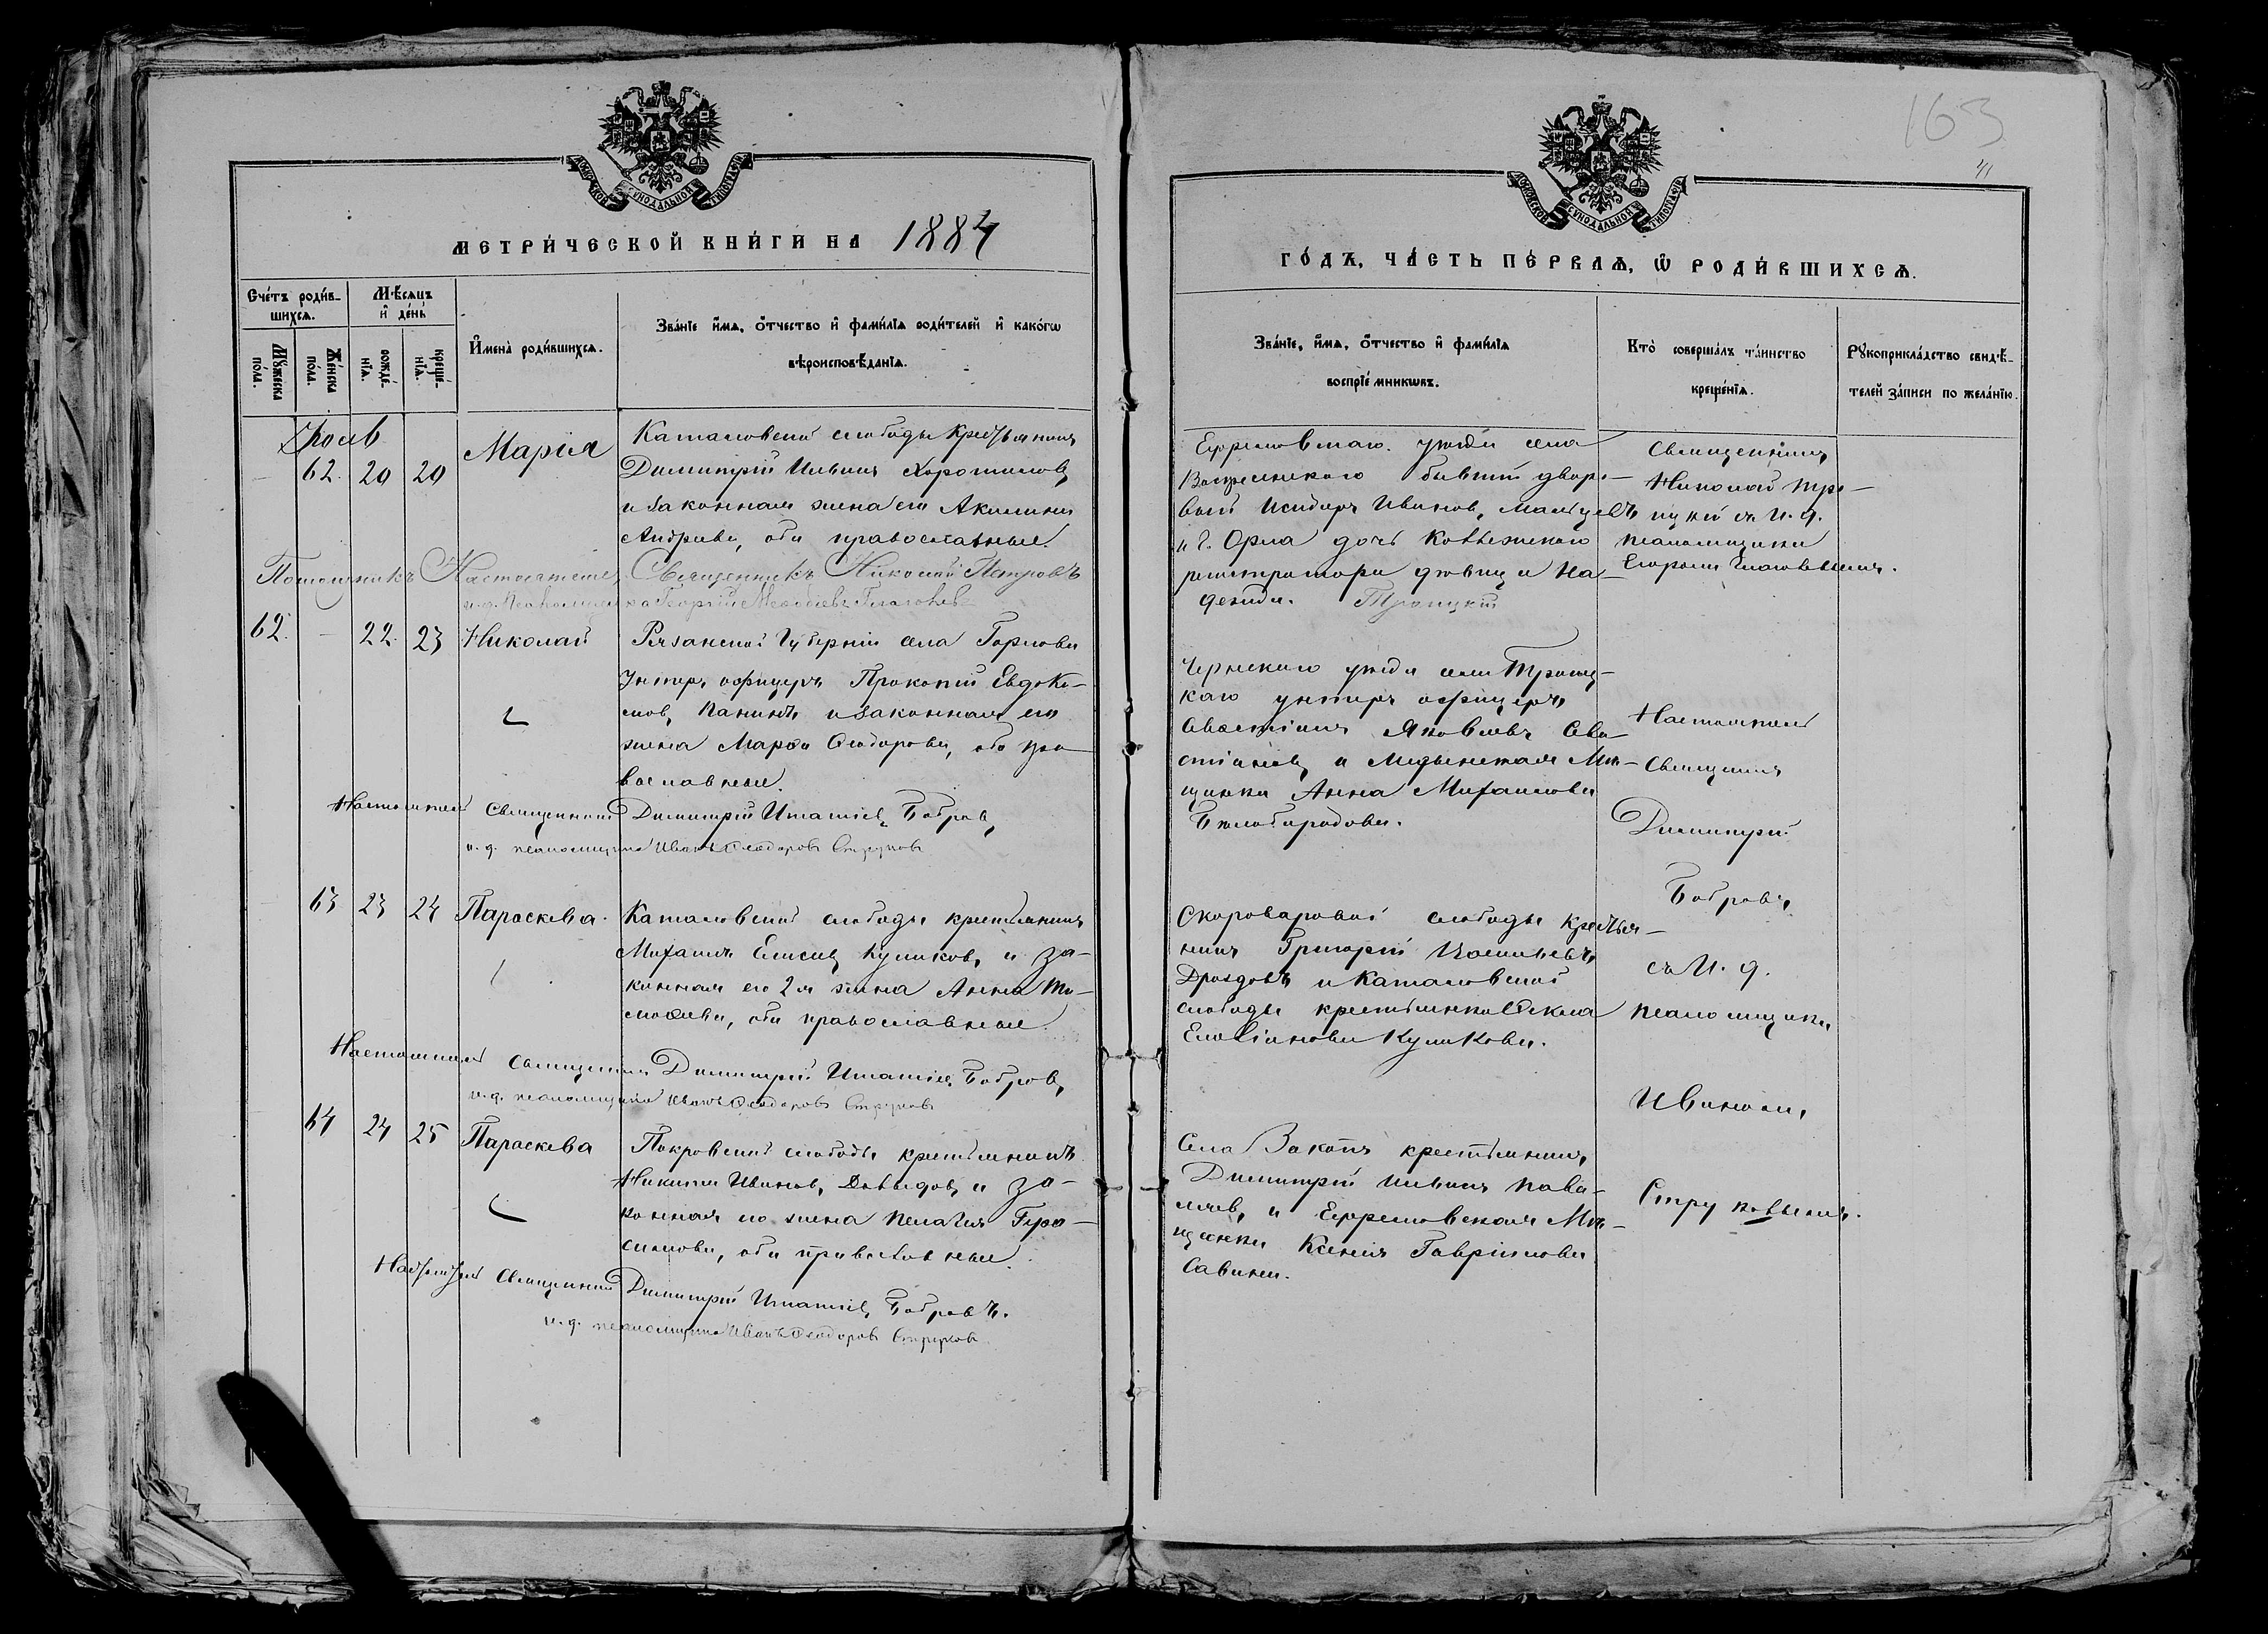 163
41
МОСКОВСКОЙ СѴНОДАЛЬНОЙ ТИПОГРАФІИ
МОСКОВСКОЙ СѴНОДАЛЬНОЙ ТИПОГРАФІИ
МЕТРИЧЕСКОЙ КНИГИ НА 1884
ГОДЪ, ЧАСТЬ ПЕРВАЯ, Ѡ РОДИВШИХСЯ.
Счетъ родив-
шихся.
Мѣсяцъ
и день
Мужеска
пола.
Женска
пола.
рожде-
нія.
креще-
нія.
Имена родившихся.
Званіе имя, отчество и фамилія родителей и какогѡ
вѣроисповѣданія.
Званіе, имя, отчество и фамилія
воспріемникѡвъ.
Кто совершалъ таинство
крещенія.
Рукоприкладство свидѣ-
телей записи по желанію.
62. 20 20 Марія
крестьянинъ
Димитрій Ильинъ Хоротиловъ
и законная жена его Акилина
Андреева, оба православные.
Ефремовскаго уѣзда села
Воскресенскаго бывшій дворо-
вый Исидоръ Ивановъ Мальцевъ
и г. Орла дочь Коллежскаго
регистратора дѣвица На-
дежда Троицкій
Священникъ
Николай Тро-
ицкій съ и. д.
псаломщика
Егоромъ Глаголевымъ.
Помощникъ Настоятеля, Священникъ Николай Петровъ
и. д. Псаломщика Георгій Глаголевъ
62. 22. 23 Николай
Рязанской Губерніи села Горлова
Унтеръ офицеръ Прокопій Евдоки-
мовъ Панинъ и законная его
жена Марѳа Ѳеодорова, оба пра-
вославные.
Чернскаго уѣзда села Троиц-
каго унтеръ офицеръ
Севастіанъ Яковлевъ Сева-
стіановъ и Медынская Мѣ-
щанка Анна Михаилова
Бѣлобородова.
Настоятель
Священникъ
Димитрій
Бобровъ
съ И. д.
псаломщика
Иваномъ
Струковымъ.
Настоятель Священникъ Димитрій Игнатіевъ Бобровъ
и. д. псаломщика Иванъ Ѳеодоровъ Струковъ
63 23 24 Параскева
слободы крестьянинъ
Михаилъ Елисеевъ Куликовъ и за-
конная его 2я жена Анна Ти-
моѳеева, оба православные.
слободы крестья-
нинъ Григорій
Дроздовъ и
слободы крестьянка Ѳекла
Емеліанова Куликова.
Настоятель Священникъ Димитрій Игнатіевъ Бобровъ
и. д. псаломщика Иванъ Ѳеодоровъ Струковъ
64 24 25 Параскева
Покровской слободы крестьянинъ
Никита Ивановъ Давыдовъ и за-
конная его жена Пелагія Гера-
симова, оба православные.
Села Закопъ крестьянинъ
Димитрій Ильинъ
и Ефремовская Мѣ-
щанка Ксенія Гавріилова
Савина.
Настоятель Священникъ Димитрій Игнатіевъ Бобровъ.
и. д. псаломщика Иванъ Ѳеодоровъ Струковъ